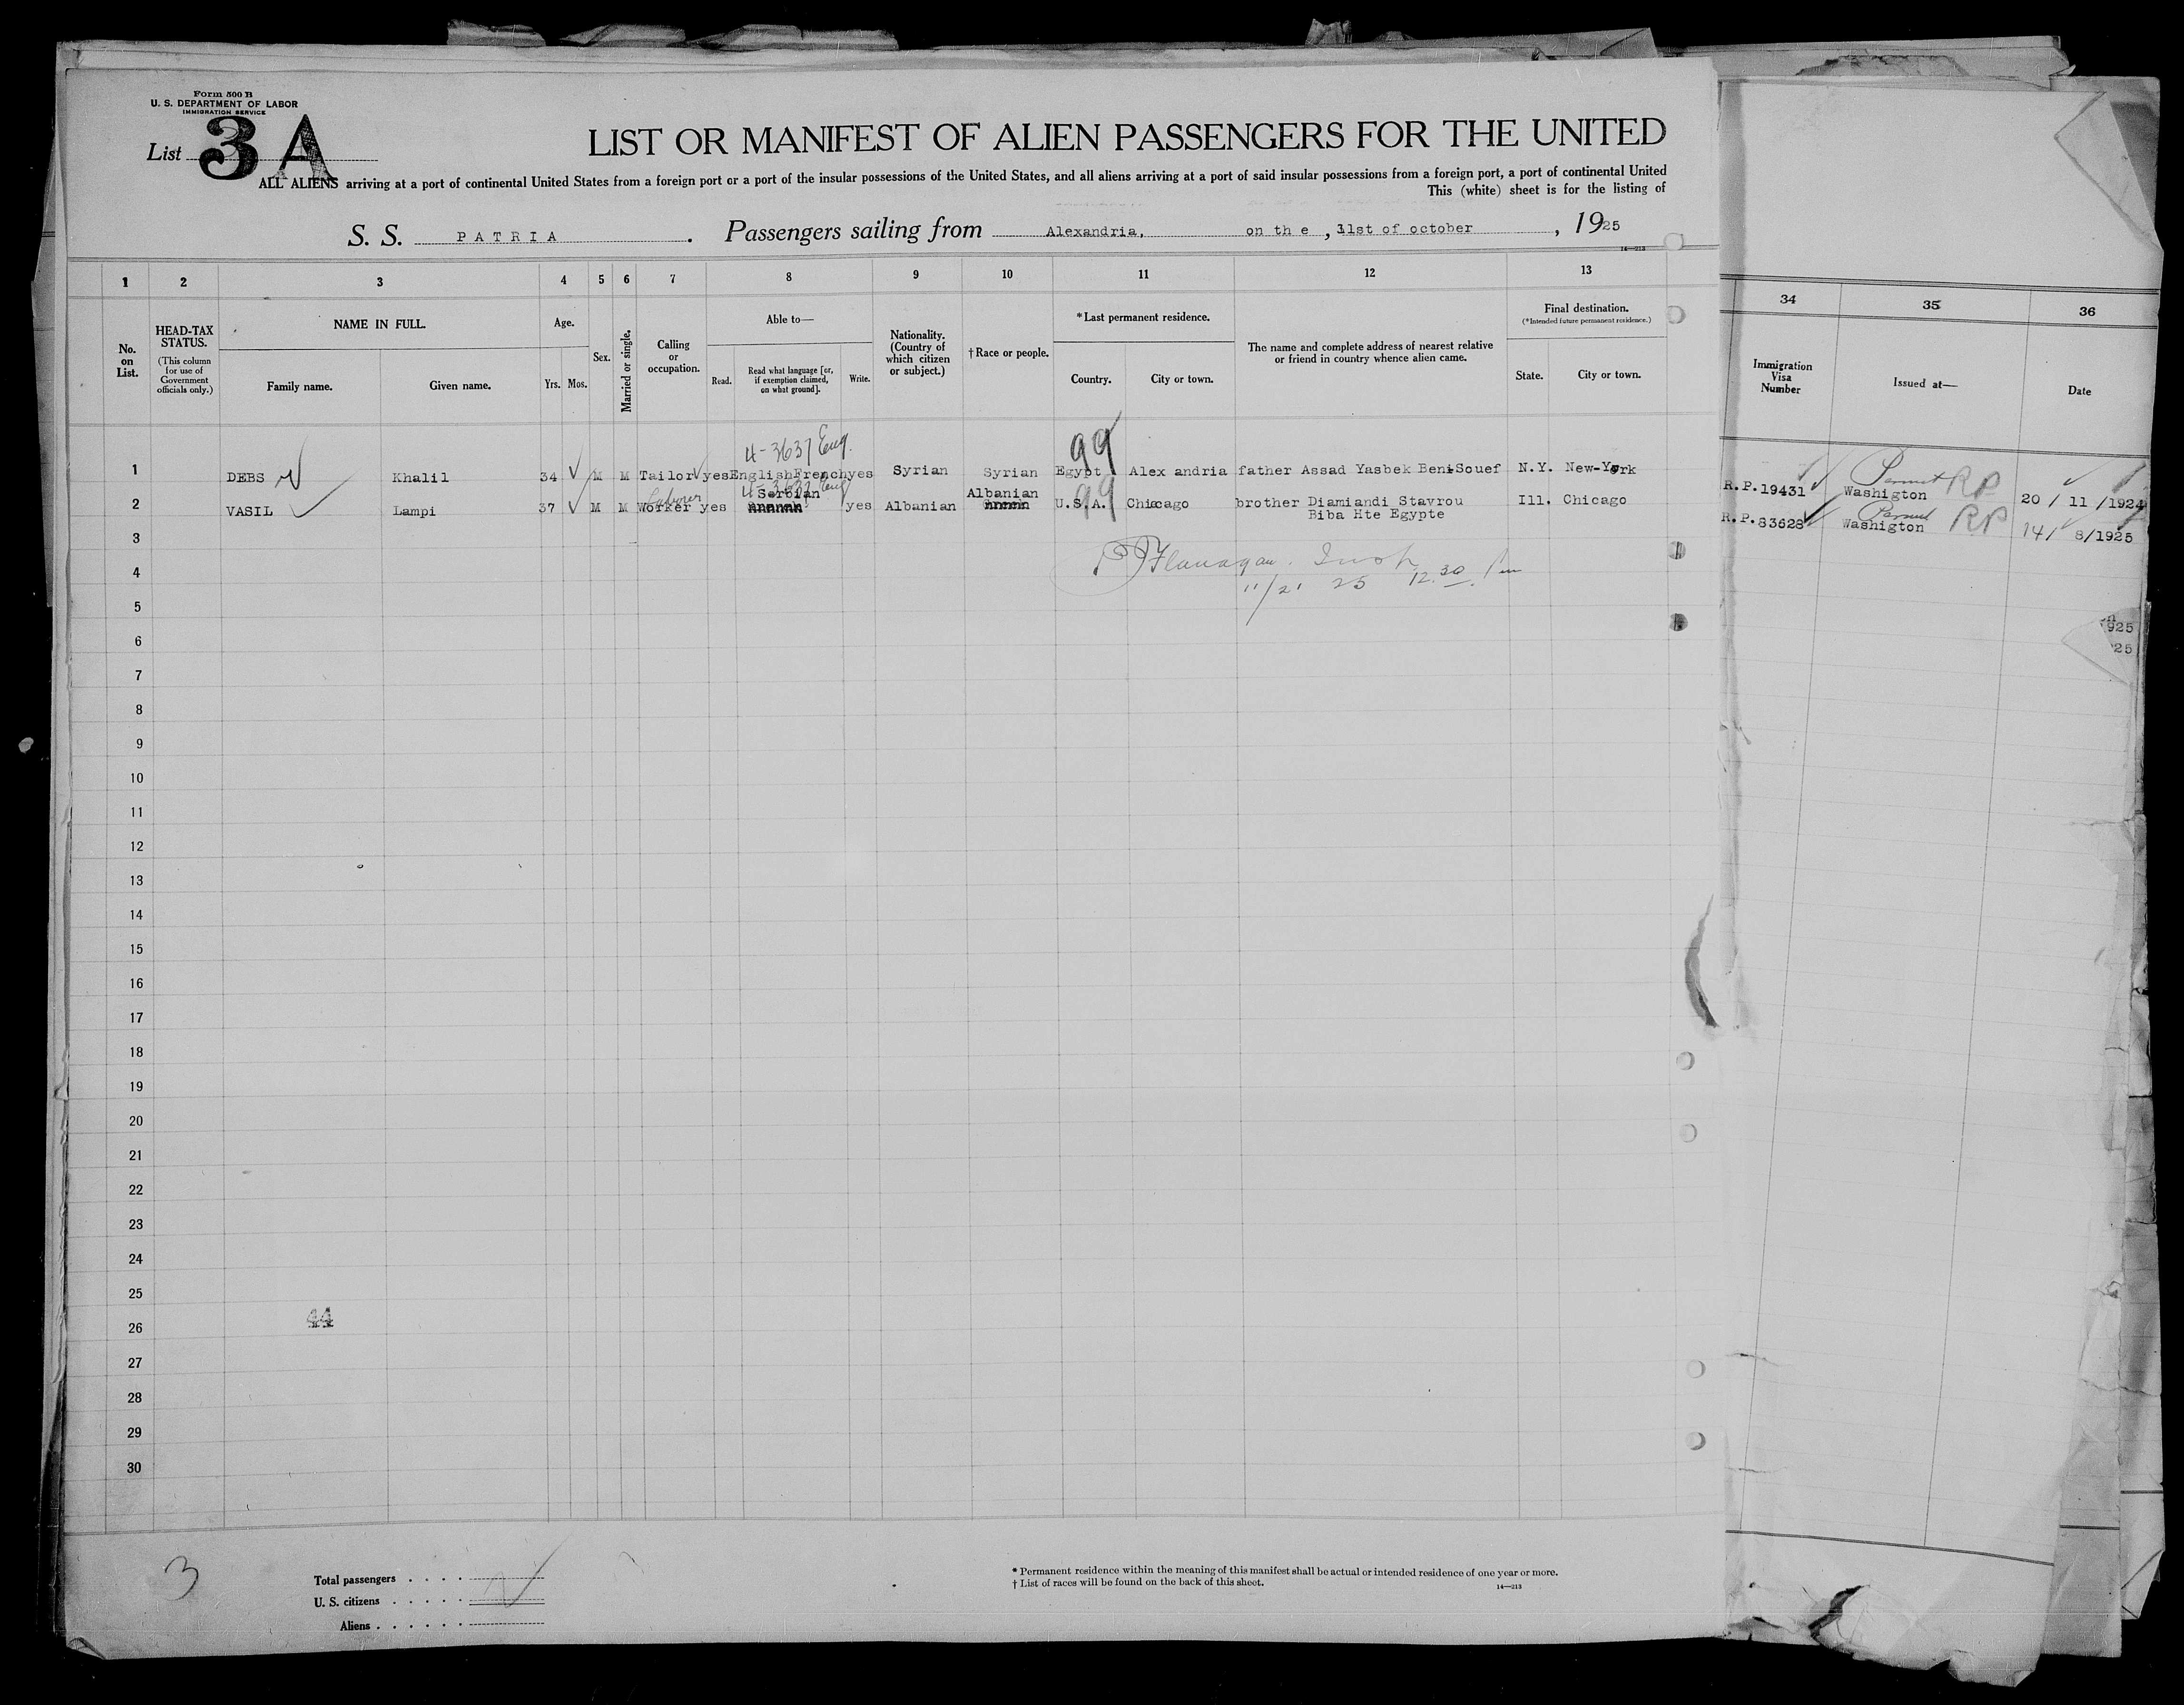 Form 500 B
U. S. DEPARTMENT OF LABOR
IMMIGRATION SERVICE
List 3 A
LIST OR MANIFEST OF ALIEN PASSENGERS FOR THE UNITED
ALL ALIENS arriving at a port of continental United States from a foreign port or a port of the insular possessions of the United States, and all aliens arriving at a port of said insular possessions from a foreign port, a port of continental United
This (white) sheet is for the listing of
S. S. PATRIA . Passengers sailing from Alexandria, on th e , 31st of october , 1925
14—213
1 2 3 4 5 6 7 8 9 10 11 12 13
34 35 36
No. on List.
HEAD-TAX STATUS.
(This column for use of Government officials only.)
NAME IN FULL.
Family name. Given name.
Age.
Yrs. Mos.
Sex.
Married or single.
Calling or occupation.
Able to—
Read. Read what language [or, if exemption claimed, on what ground]. Write.
Nationality. (Country of which citizen or subject.)
†Race or people.
*Last permanent residence.
Country. City or town.
The name and complete address of nearest relative or friend in country whence alien came.
Final destination.
(*Intended future permanent residence.)
State. City or town.
Immigration Visa Number
Issued at—
Date
4-3637 Eng. 99
1 DEBS Khalil 34 M M Tailor yes EnglishFrench yes Syrian Syrian Egypt Alex andria father Assad Yasbek Beni-Souef N.Y. New-York
Permit RP
R.P.19431 Washigton 20 / 11 /1924
4-3637 Eng 99
Laborer Serbian Albanian
2 VASIL Lampi 37 M M Worker yes yes Albanian U.S.A. Chicago brother Diamiandi Stavrou Ill. Chicago
Biba Hte Egypte
Permit RP
R.P.83628 Washigton 14/ 8/1925
3
Flanagan. Insp
4
11/21 25 12.30 pm
5
6
925
25
7
8
9
10
11
12
13
14
15
16
17
18
19
20
21
22
23
24
25
44
26
27
28
29
30
3
Total passengers . . . .
U. S. citizens . . . . .
Aliens . . . . . .
* Permanent residence within the meaning of this manifest shall be actual or intended residence of one year or more.
† List of races will be found on the back of this sheet.
14—213